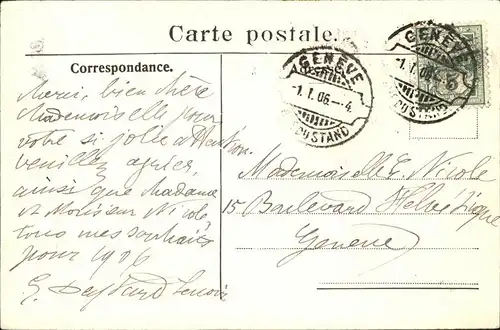 Carte postale.
Correspondance.
Merci, bien chère
Mademoiselle pour
votre si jolie attention.
veuillez agréer,
ainsi que Madame
et Monsieur Nicole,
tous mes souhaits
pour 1906
GENEVE
1.I.06.-4
CONS. RUSTAND
GENEVE
1.I.06.
RUSTAND
5
Mademoiselle E. Nicole
15 Boulevard Helvétique
Genève